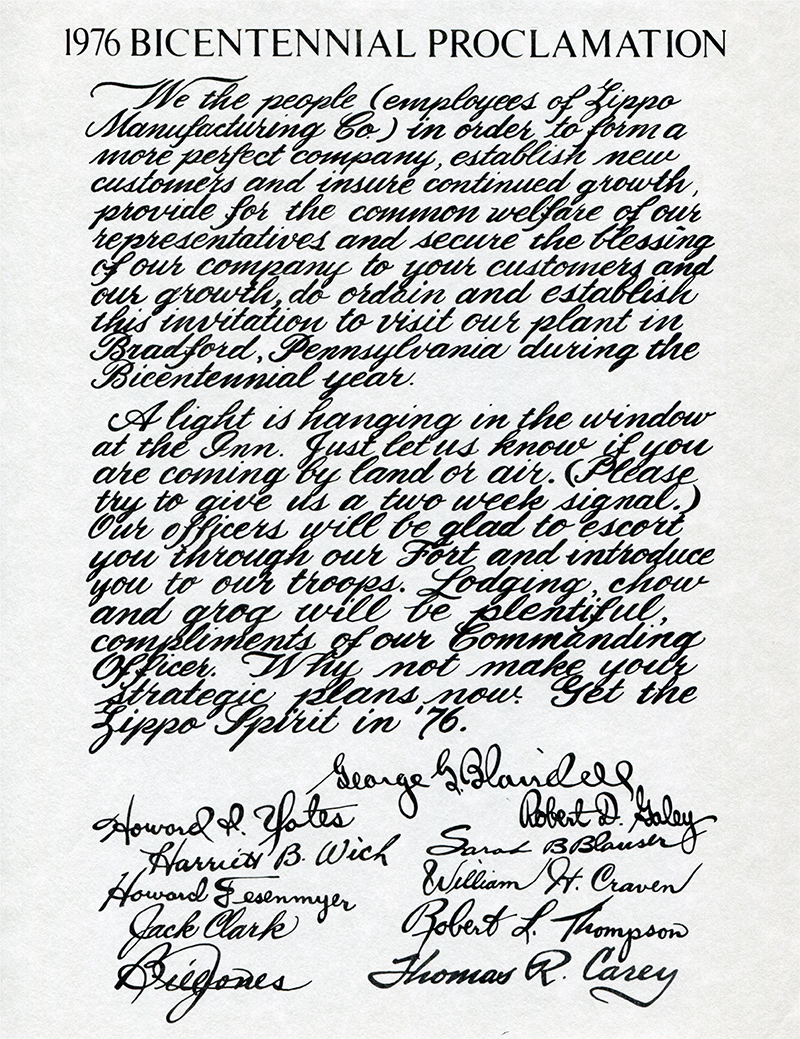 1976 BICENTENNIAL PROCLAMATION
We the people (employees of Zippo
Manufacturing Co.) in order to form a
more perfect company, establish new
customers and insure continued growth,
provide for the common welfare of our
representatives and secure the blessing
of our company to your customers and
our growth, do ordain and establish
this invitation to visit our plant in
Bradford, Pennsylvania during the
Bicentennial year.
A light is hanging in the window
at the Inn. Just let us know if you
are coming by land or air. (Please
try to give us a two week signal.)
Our officers will be glad to escort
you through our Fort and introduce
you to our troops. Lodging, chow
and grog will be plentiful,
compliments of our Commanding
Officer. Why not make your
strategic plans now. Get the
Zippo Spirit in '76.
George G. Blaisdell
Howard Yates
Robert D. Galey
Harriett B. Wich
Sarah B Blauser
Howard Fesenmyer
William H. Craven
Jack Clark
Robert L. Thompson
Bill Jones
Thomas R. Carey